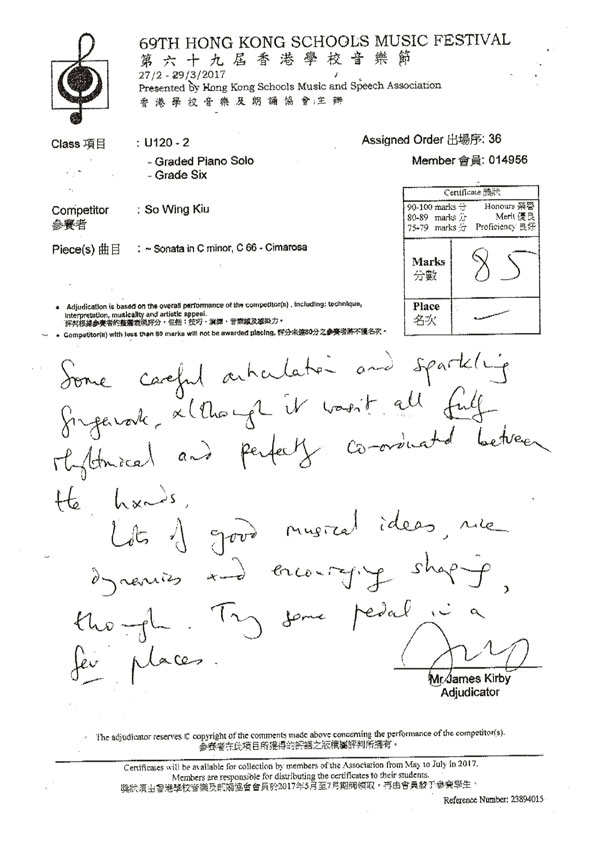 69TH HONG KONG SCHOOLS MUSIC FESTIVAL
第六十九屆香港學校音樂節
27/2 - 29/3/2017
Presented by Hong Kong Schools Music and Speech Association
香港學校音樂及朗誦協會主辦
Class 項目 : U120 - 2
Assigned Order 出場序: 36
- Graded Piano Solo
- Grade Six
Member 會員: 014956
Certificate 獎狀
90-100 marks 分 Honours 榮譽
80-89 marks 分 Merit 優良
75-79 marks 分 Proficiency 良好
Competitor : So Wing Kiu
參賽者
Piece(s) 曲目 : ~ Sonata in C minor, C 66 - Cimarosa
Marks 85
分數
Place —
名次
• Adjudication is based on the overall performance of the competitor(s), including: technique,
interpretation, musicality and artistic appeal.
評判根據參賽者的整體表現評分，包括：技巧、演繹、音樂感及感染力。
• Competitor(s) with less than 80 marks will not be awarded placing. 評分未達80分之參賽者將不獲名次。
Some careful articulation and sparkling
fingerwork, although it wasn't all fully
rhythmical and perfectly co-ordinated between
the hands.
Lots of good musical ideas, nice
dynamics and encouraging shaping,
though. Try some pedal in a
few places.
Mr James Kirby
Adjudicator
The adjudicator reserves © copyright of the comments made above concerning the performance of the competitor(s).
參賽者在此項目所獲得的評語之版權屬評判所擁有。
Certificates will be available for collection by members of the Association from May to July in 2017.
Members are responsible for distributing the certificates to their students.
獎狀須由香港學校音樂及朗誦協會會員於2017年5月至7月期間領取，再由會員發予參賽學生。
Reference Number: 23894015